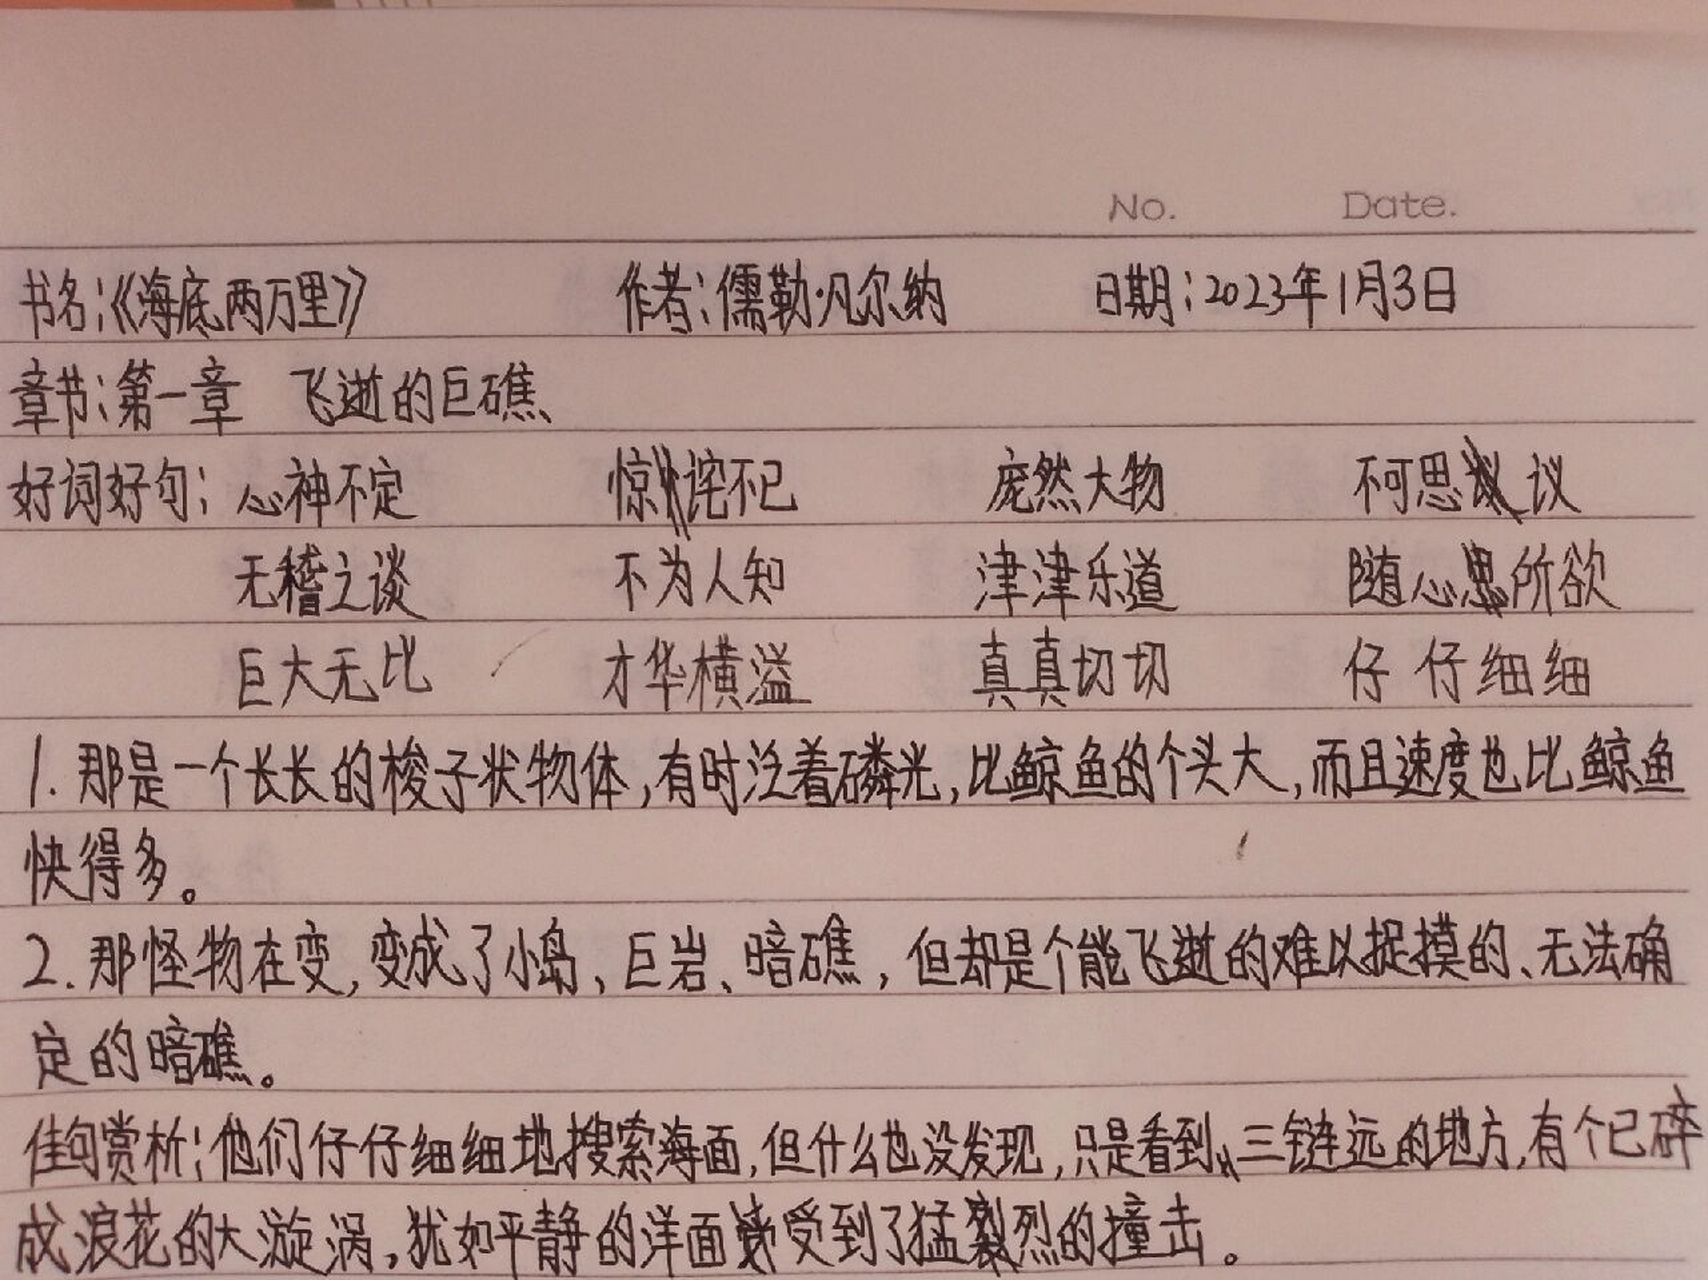 No. Date.
书名:《海底两万里》 作者:儒勒·凡尔纳 日期:2023年1月3日
章节:第一章 飞逝的巨礁
好词好句: 心神不定 惊诧不已 庞然大物 不可思议
无稽之谈 不为人知 津津乐道 随心所欲
巨大无比 才华横溢 真真切切 仔仔细细
1. 那是一个长长的梭子状物体,有时泛着磷光,比鲸鱼的个头大,而且速度也比鲸鱼
快得多。
2. 那怪物在变,变成了小岛、巨岩、暗礁,但却是个能飞逝的难以捉摸的、无法确
定的暗礁。
佳句赏析:他们仔仔细细地搜索海面,但什么也没发现,只是看到三链远的地方,有个已碎
成浪花的大漩涡,犹如平静的洋面受到了猛烈的撞击。